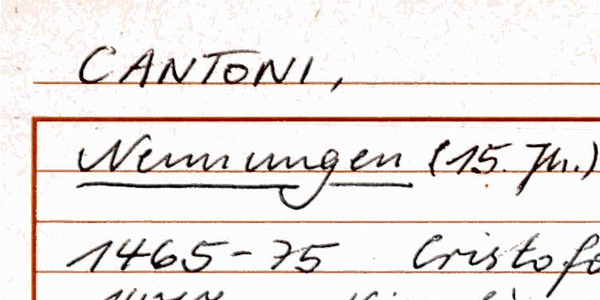 CANTONI,
Nennungen (15. Jh.)
1465-75 Cristofo